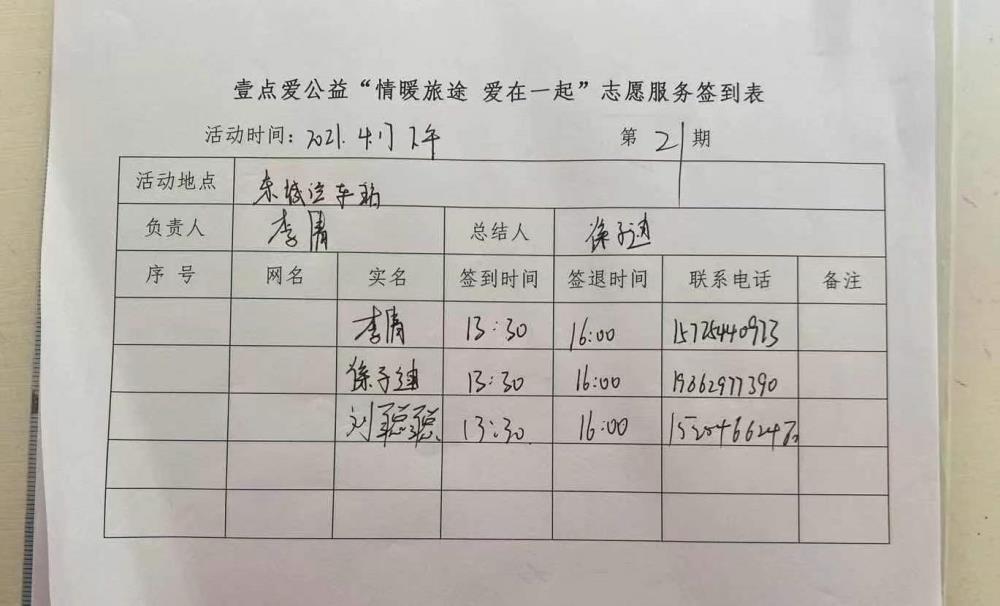 壹点爱公益“情暖旅途 爱在一起”志愿服务签到表
活动时间：2021.4.17 下午 第 21 期
活动地点 东城汽车站
负责人 李倩 总结人 徐子迪
序 号 网名 实名 签到时间 签退时间 联系电话 备注
李倩 13:30 16:00 15725440973
徐子迪 13:30 16:00 19862977390
刘聪聪 13:30 16:00